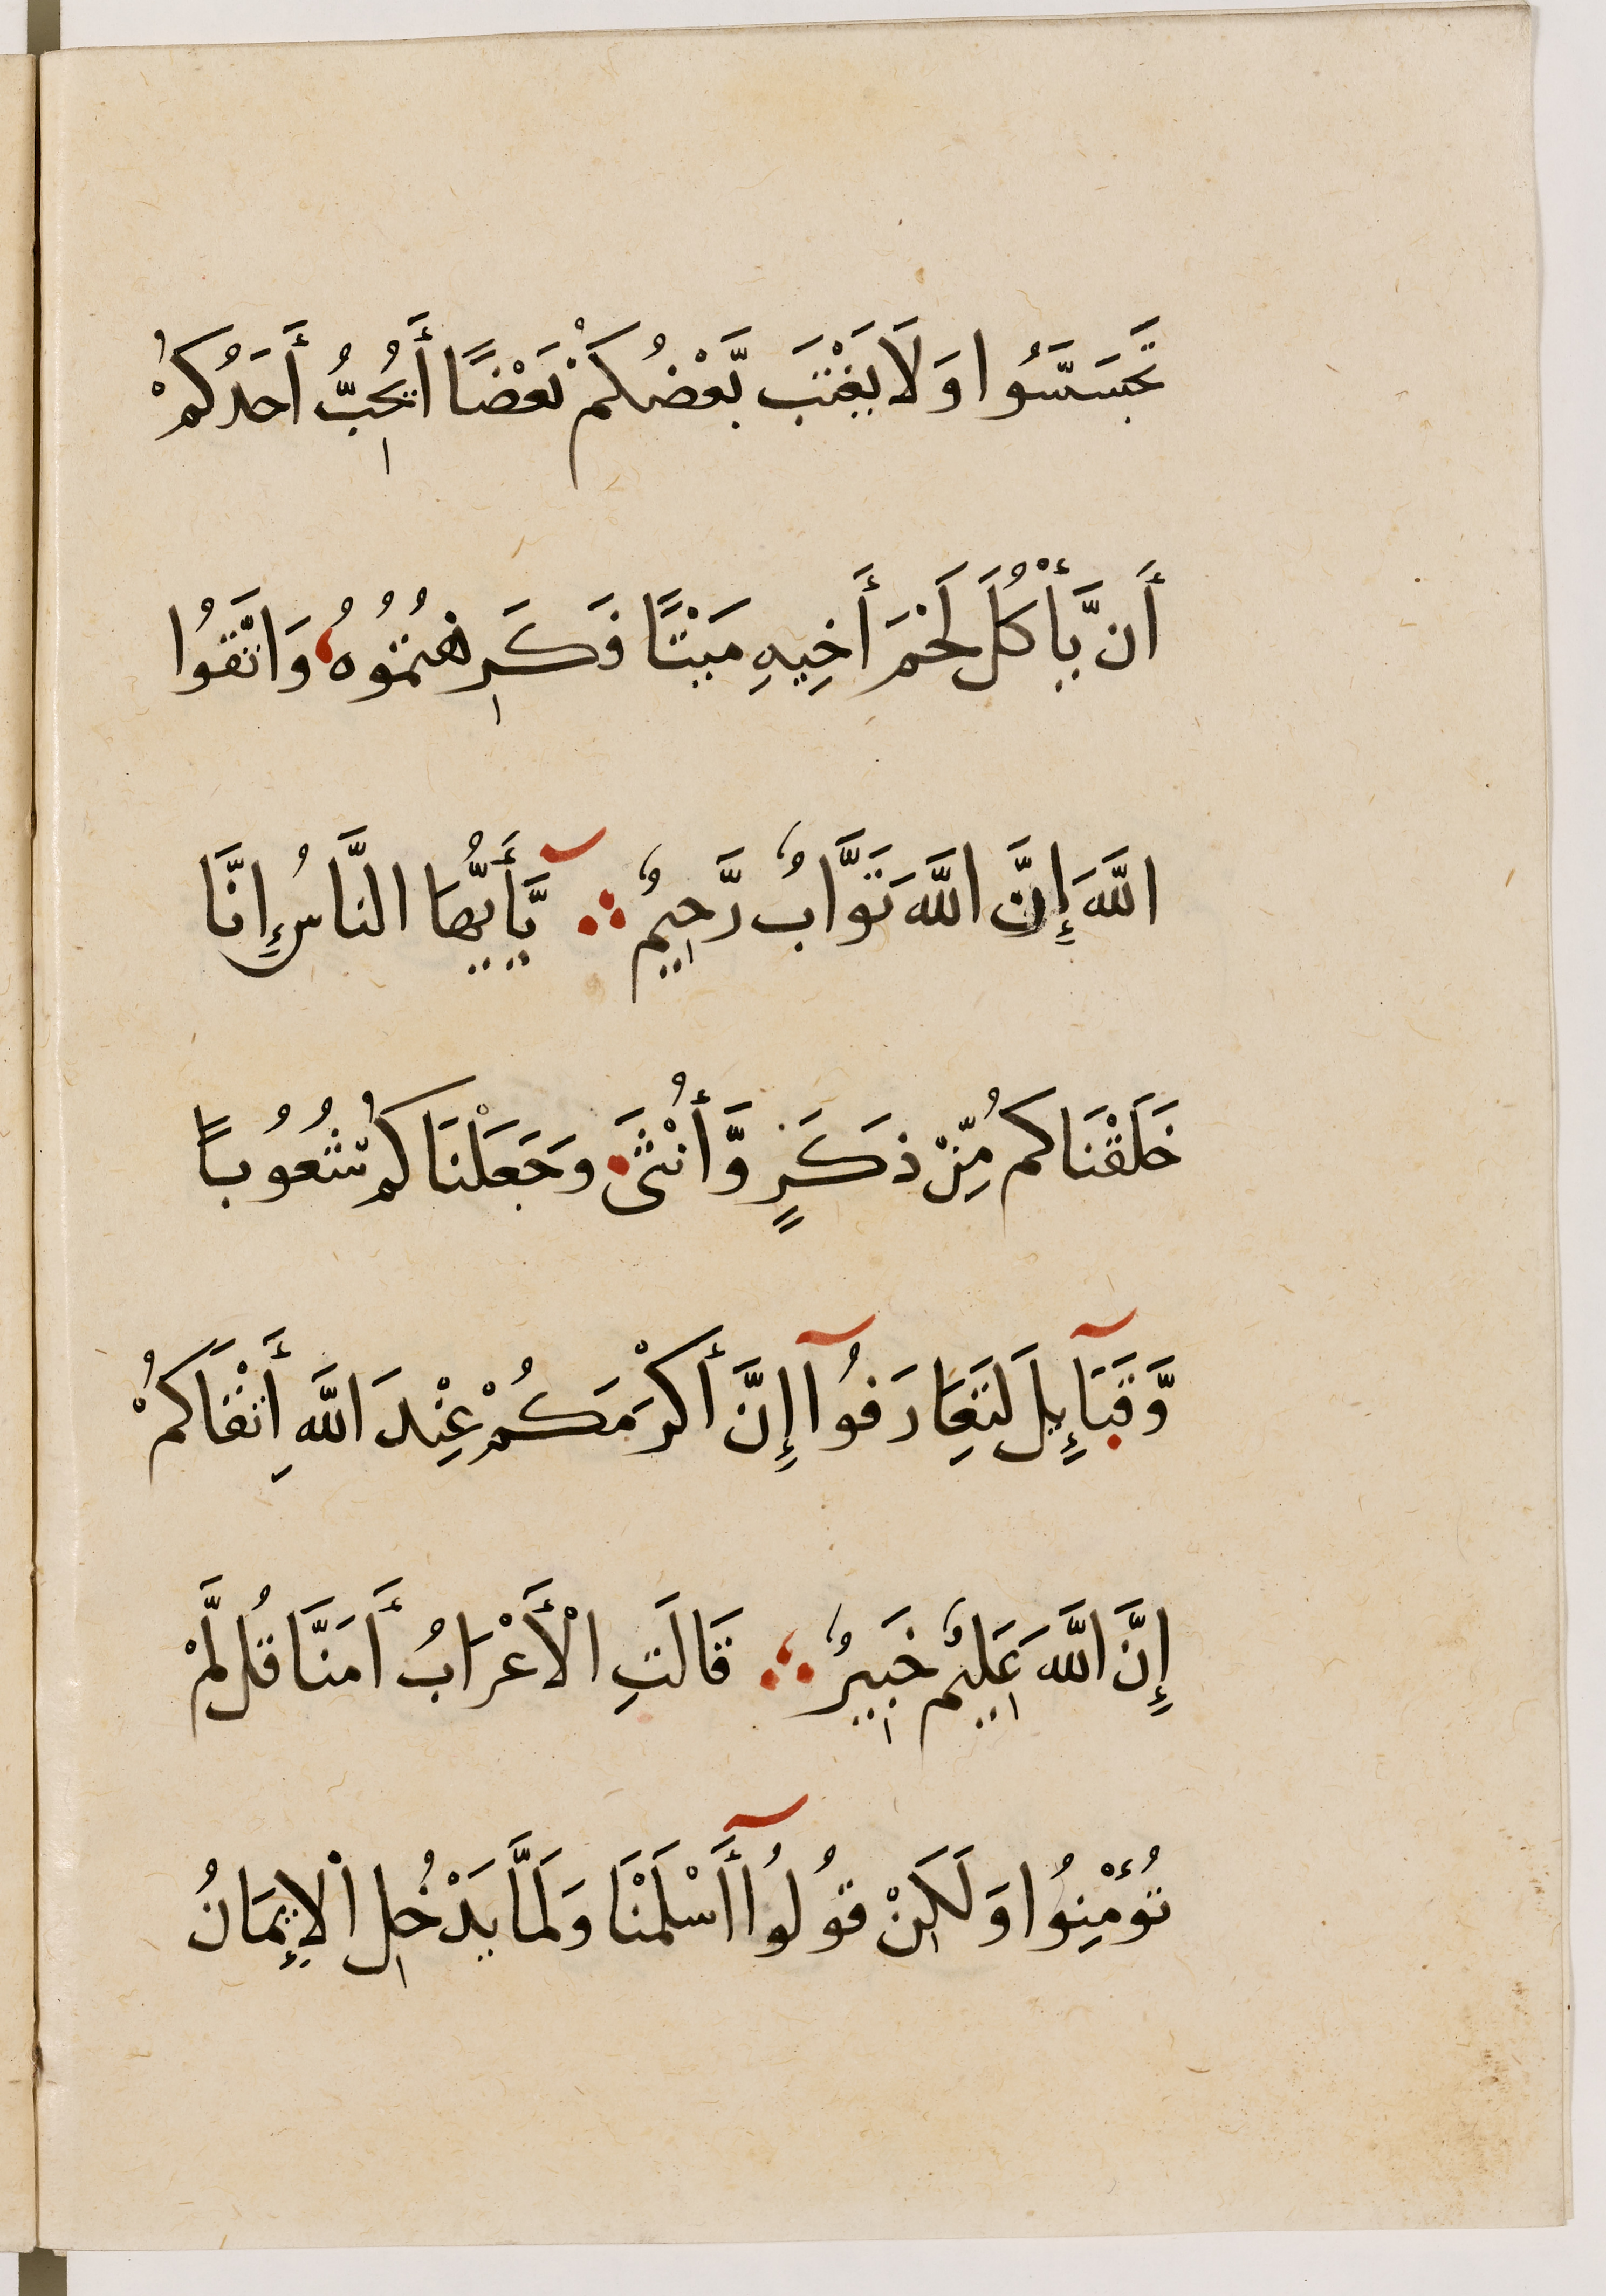 تَجَسَّسُوا وَلَا يَغْتَبْ بَّعْضُكُمْ بَعْضًا أَيُحِبُّ أَحَدُكُمْ
أَن يَّأْكُلَ لَحْمَ أَخِيهِ مَيْتًا فَكَرِهْتُمُوهُ وَاتَّقُوا
اللَّهَ إِنَّ اللَّهَ تَوَّابٌ رَّحِيمٌ يَّأَيُّهَا النَّاسُ إِنَّا
خَلَقْنَاكُم مِّنْ ذَكَرٍ وَّأُنْثَى وَجَعَلْنَاكُمْ شُعُوبًا
وَّقَبَآئِلَ لِتَعَارَفُوآ إِنَّ أَكْرَمَكُمْ عِنْدَ اللَّهِ أَتْقَاكُمْ
إِنَّ اللَّهَ عَلِيمٌ خَبِيرٌ قَالَتِ الْأَعْرَابُ أَمَنَّا قُل لَّمْ
تُؤْمِنُوا وَلَكِنْ قُولُوآ أَسْلَمْنَا وَلَمَّا يَدْخُلِ الْإِيمَانُ